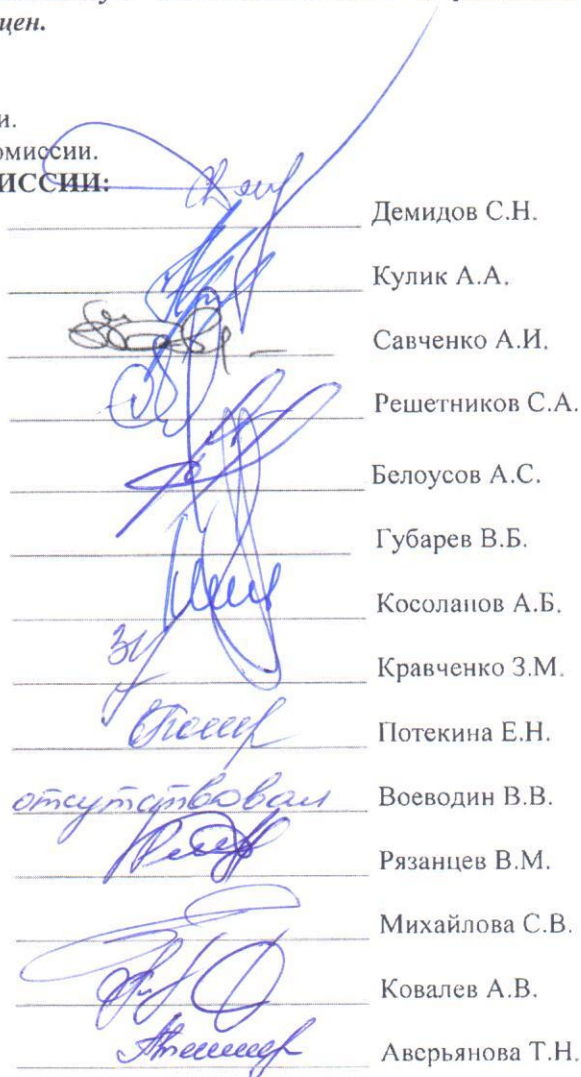 цен.
и.
омиссии.
ИССИИ:
Демидов С.Н.
Кулик А.А.
Савченко А.И.
Решетников С.А.
Белоусов А.С.
Губарев В.Б.
Косолапов А.Б.
Кравченко З.М.
Потекина Е.Н.
отсутствовал Воеводин В.В.
Рязанцев В.М.
Михайлова С.В.
Ковалев А.В.
Аверьянова Т.Н.